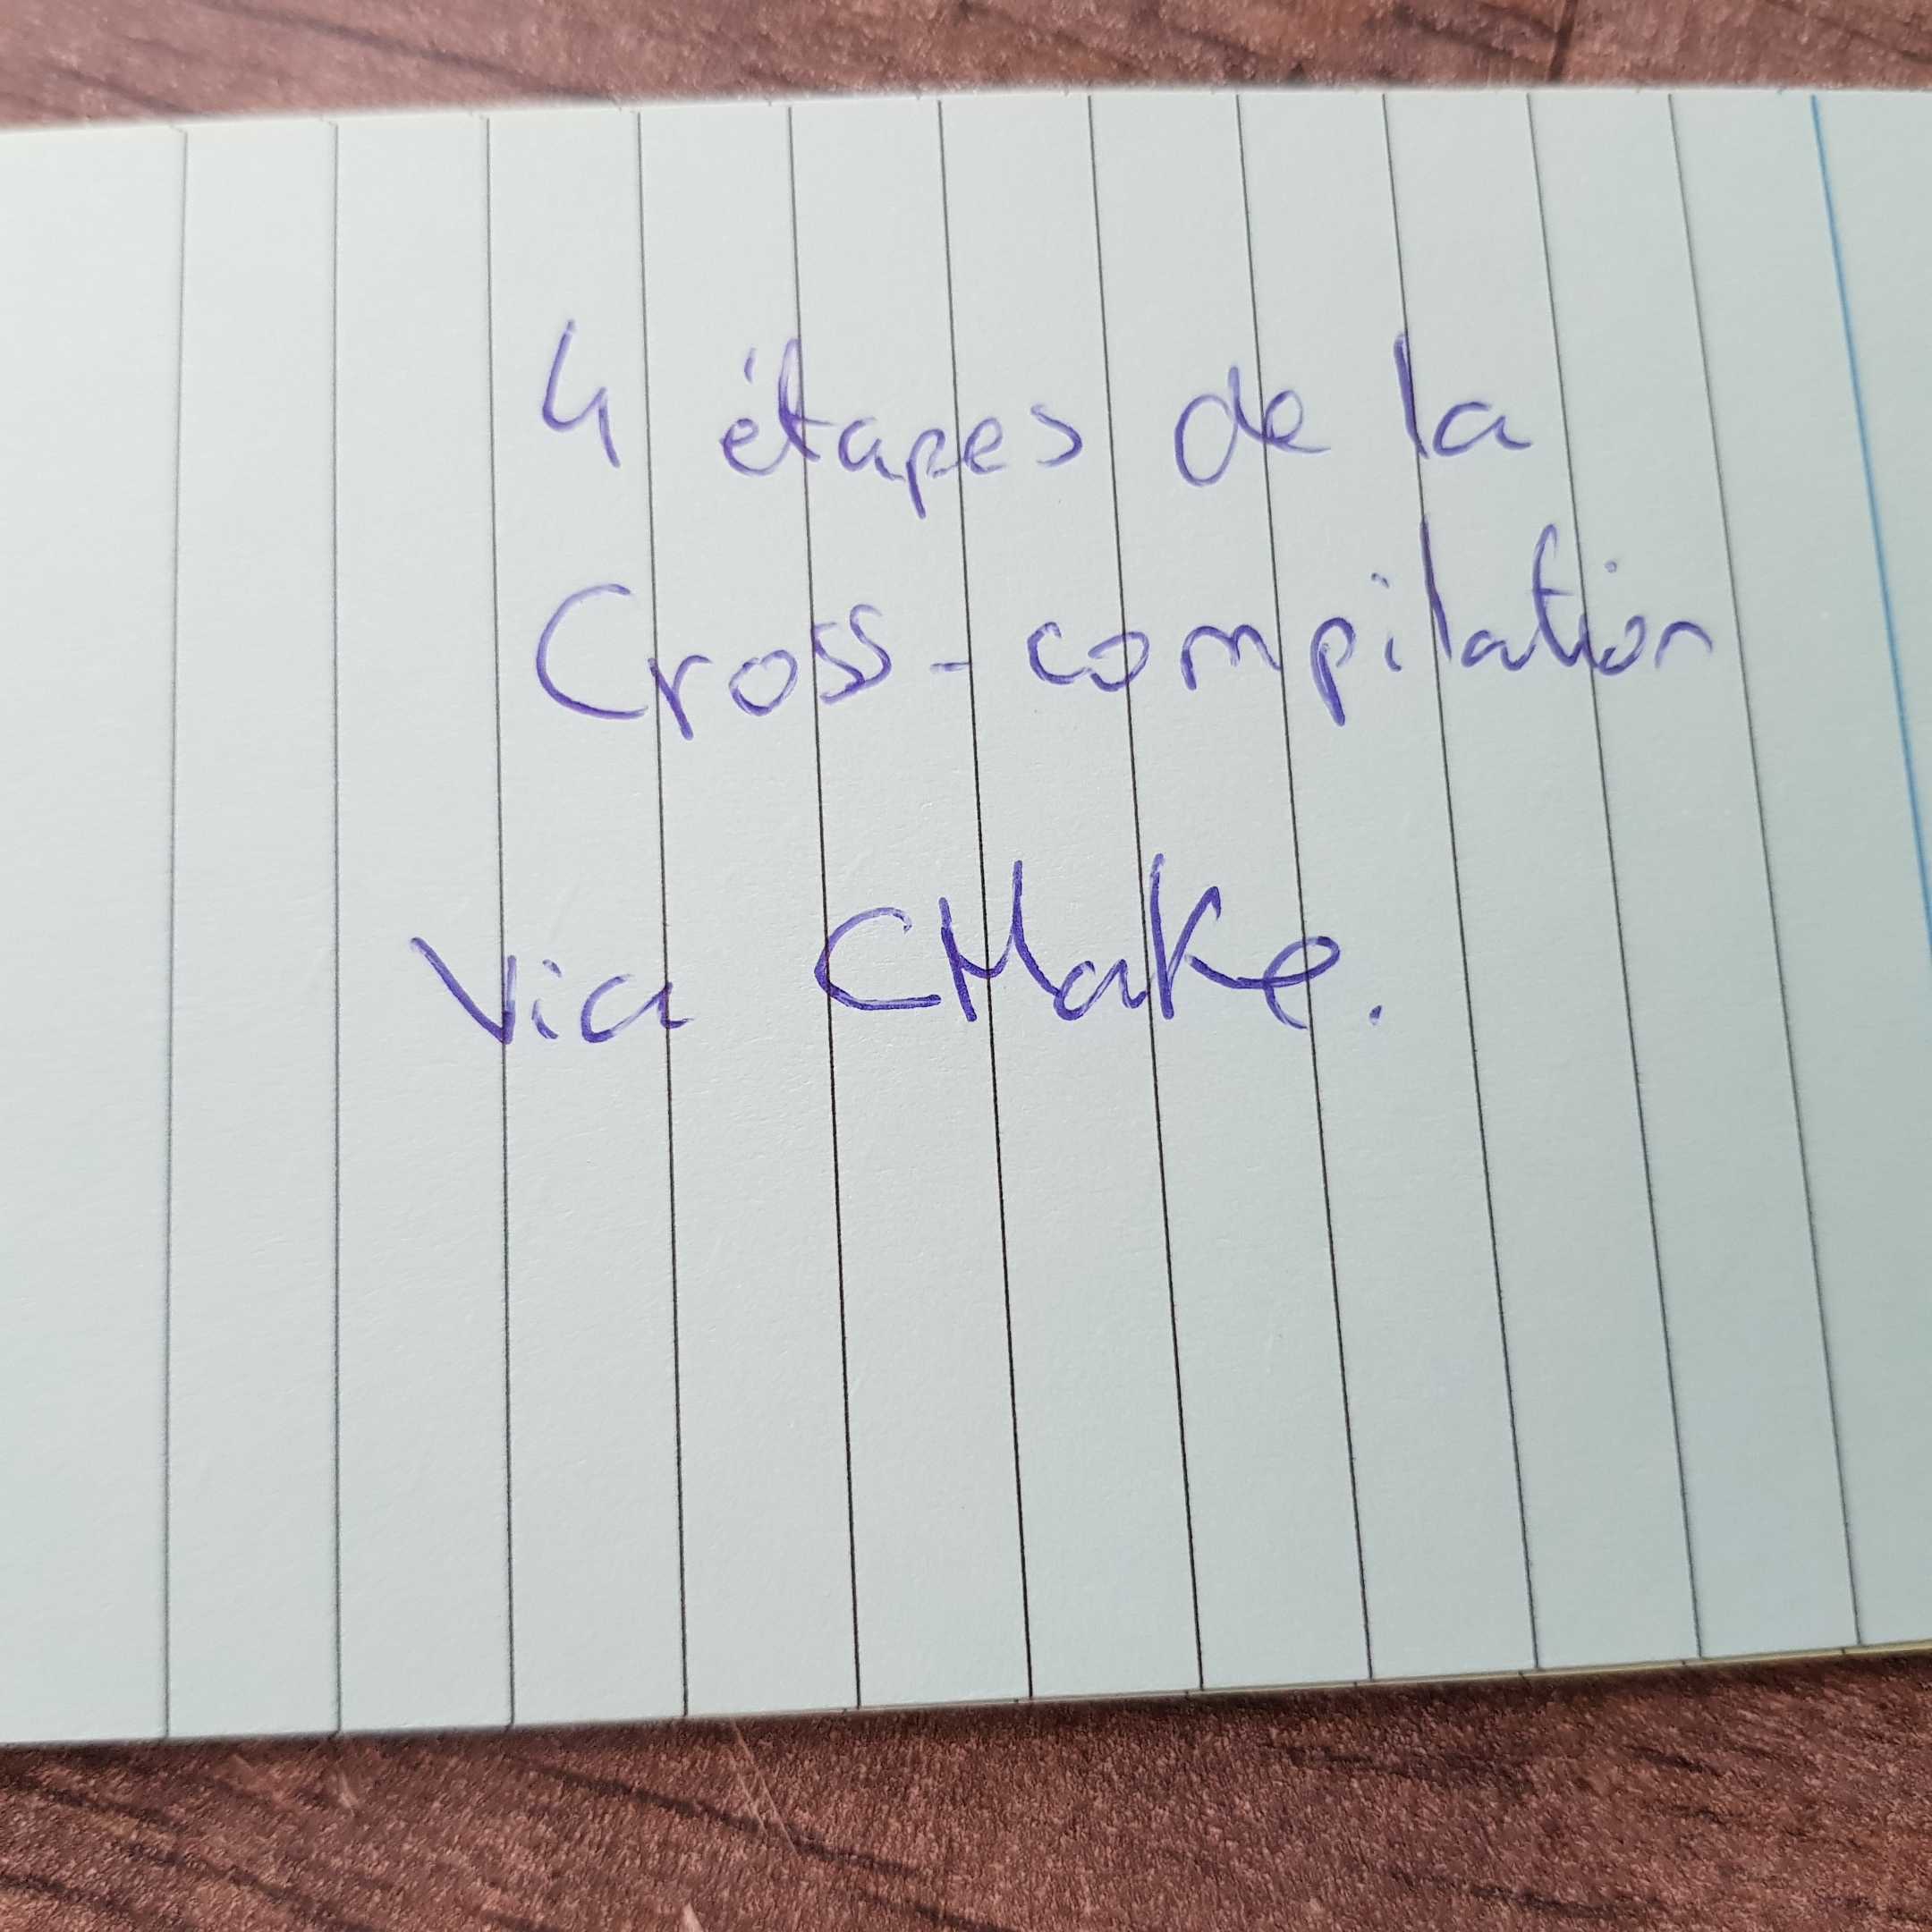 4 étapes de la
Cross-compilation
Via CMake.